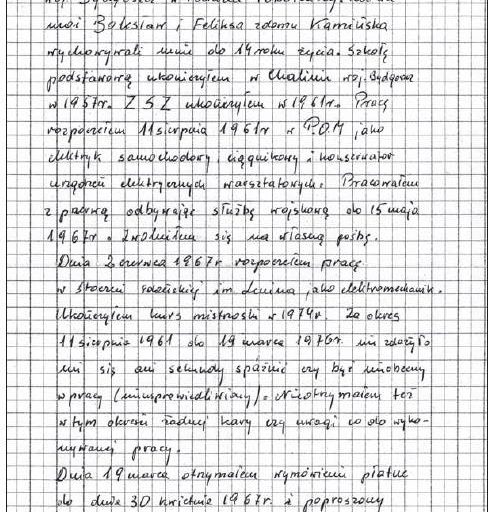 woj. Bydgoszcz w rodzinie
moi Bolesław i Feliksa z domu Kamińska
wychowywali mnie do 14 roku życia. Szkołę
podstawową ukończyłem w Chalinie woj. Bydgoszcz
w 1957r. Z S Z ukończyłem w 1961r. Pracę
rozpocząłem 11 sierpnia 1961r w P.O.M jako
elektryk samochodowy, ciągnikowy i konserwator
urządzeń elektrycznych warsztatowych. Pracowałem
z przerwą odbywając służbę wojskową do 15 maja
1967r. Zwolniłem się na własną prośbę.
Dnia 2 czerwca 1967r rozpocząłem pracę
w Stoczni Gdańskiej im. Lenina, jako elektromechanik.
Ukończyłem kurs mistrzoski w 1974r. Za okres
11 sierpnia 1961 do 19 marca 1976r. nie zdążyło
mi się ani sekundy spóźnić czy być nieobecny
w pracy (nieusprawiedliwiony). Nieotrzymałem też
w tym okresie żadnej kary czy uwagi co do wyko-
nywanej pracy.
Dnia 19 marca otrzymałem wymówienie płatne
do dnia 30 kwietnia 1967r. i poproszony